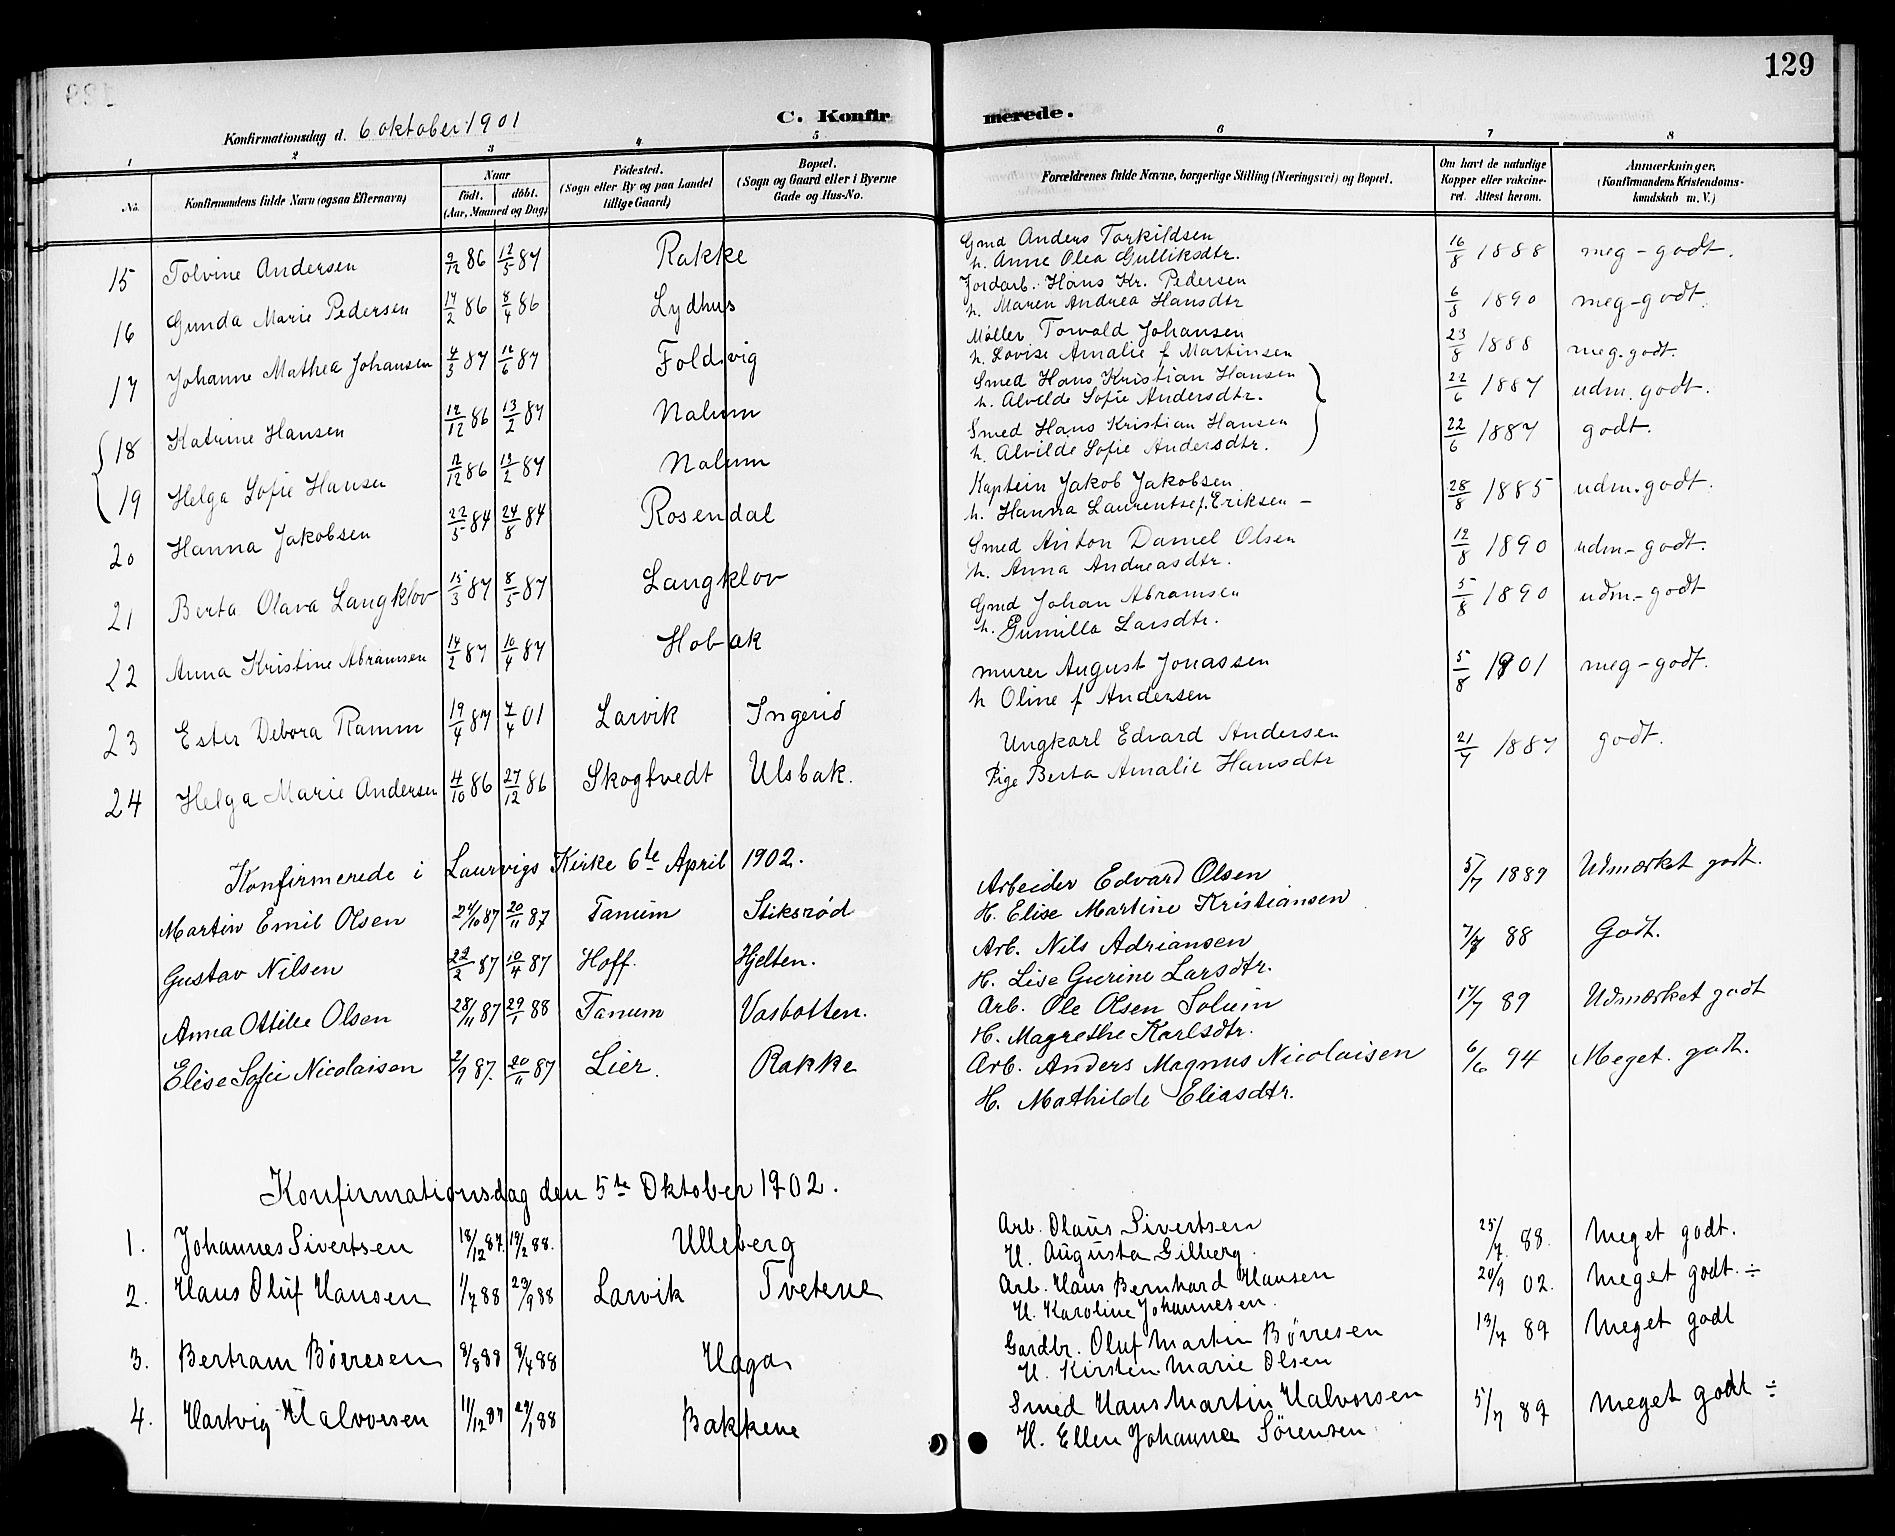 129
C. Konfirmerede.
Konfirmationsdag d. 6 oktober 1901
1 2 3 4 5 6 7 8
No.
Konfirmandens fulde Navn (ogsaa Efternavn)
Naar
født. døbt.
(Aar, Maaned og Dag)
Fødested.
(Sogn eller By og paa Landet
tillige Gaard)
Bopæl.
(Sogn og Gaard eller i Byerne
Gade og Hus-No.
Forældrenes fulde Navne, borgerlige Stilling (Næringsvei) og Bopæl.
Om havt de naturlige
Kopper eller vakcine-
ret. Attest herom.
Anmærkninger,
(Konfirmandens Kristendoms-
kundskab m. V.)
15 Tolvine Andersen 9/12 86 12/5 87 Rakke Gmd Anders Torkildsen 16/8 1888 meg-godt.
h. Anne Olea Gulliksdtr.
16 Gunda Marie Pedersen 14/2 86 8/4 86 Lydhus Jordarb. Hans Kr. Pedersen 6/5 1890 meg-godt.
h. Maren Andrea Hansdtr
17 Johanne Mathea Johansen 4/3 87 12/6 87 Foldvig Møller Torvald Johansen 23/8 1888 meg.godt.
h. Lovise Amalie f Martinsen
18 Katrine Hansen 12/12 86 13/2 87 Nalum Smed Hans Kristian Hansen 22/6 1887 udm.godt.
h. Alvilde Sofie Andersdtr.
19 Helga Sofie Hansen 12/12 86 13/2 87 Nalum Smed Hans Kristian Hansen 22/6 1887 godt.
h. Alvilde Sofie Andersdtr.
20 Hanna Jakobsen 22/5 84 24/8 84 Rosendal Kaptein Jakob Jakobsen 28/8 1885 udm.godt.
h. Hanna Laurentse f. Eriksen –
21 Berta Olava Langklov 15/3 87 8/5 87 Langklov Smed Anton Daniel Olsen 12/8 1890 udm-godt.
h. Anna Andreasdtr.
22 Anna Kristine Abramsen 14/2 87 10/4 87 Hobæk Gmd Johan Abramsen 5/8 1890 udm.-godt
h. Gunilla Larsdtr.
23 Ester Debora Ramm 19/4 87 7/4 01 Larvik Ingerid murer August Jonassen 5/8 1901 meg-godt.
h Oline f Andersen
24 Helga Marie Andersen 4/10 86 27/12 86 Skogtvedt Ulsbak. Ungkarl Edvard Andersen 21/7 1887 godt.
Pige Berta Amalie Hansdtr
Konfirmerede i Laurvigs Kirke 6te April 1902.
Martin Emil Olsen 24/10 87 20/11 87 Tanum Stiksrød Arbeider Edvard Olsen 5/7 1889 Udmærket godt.
H. Elise Martine Kristiansen
Gustav Nilsen 22/2 87 10/4 87 Hoff. Hjelten. Arb. Nils Adriansen 7/7 88 Godt.
H. Lise Gurine Larsdtr.
Anna Ottilie Olsen 28/11 87 29/1 88 Tanum Vasbotten. Arb. Ole Olsen Solum 17/7 89 Udmærket godt
H. Magrethe Karlsdtr.
Elise Sofie Nicolaisen 2/9 87. 20/11 87 Lier. Rakke Arb. Anders Magnus Nicolaisen 6/6 94 Meget. godt.
H. Mathilde Eliasdtr.
Konfirmationsdag den 5te Oktober 1902.
1. Johannes Sivertsen 18/12 87. 19/2 88. Ulleberg Arb. Olaus Sivertsen 25/7 88. Meget godt.
H. Augusta Gilberg.
2. Hans Oluf Hansen 1/7 88 29/9 88 Larvik Tvetene Arb. Hans Bernhard Hansen 20/9 02. Meget godt. ÷
H. Karoline Johannesen.
3. Bertram Børresen 8/3 88 8/4 88 Haga Gardbr. Oluf Martin Børresen 13/7 89 Meget godt
H. Kirsten Marie Olsen
4. Hartvig Halvorsen 11/12 87 29/1 88 Bakkene Smed Hans Martin Halvorsen 5/7 89 Meget godt ÷
H. Ellen Johanna Sörensen